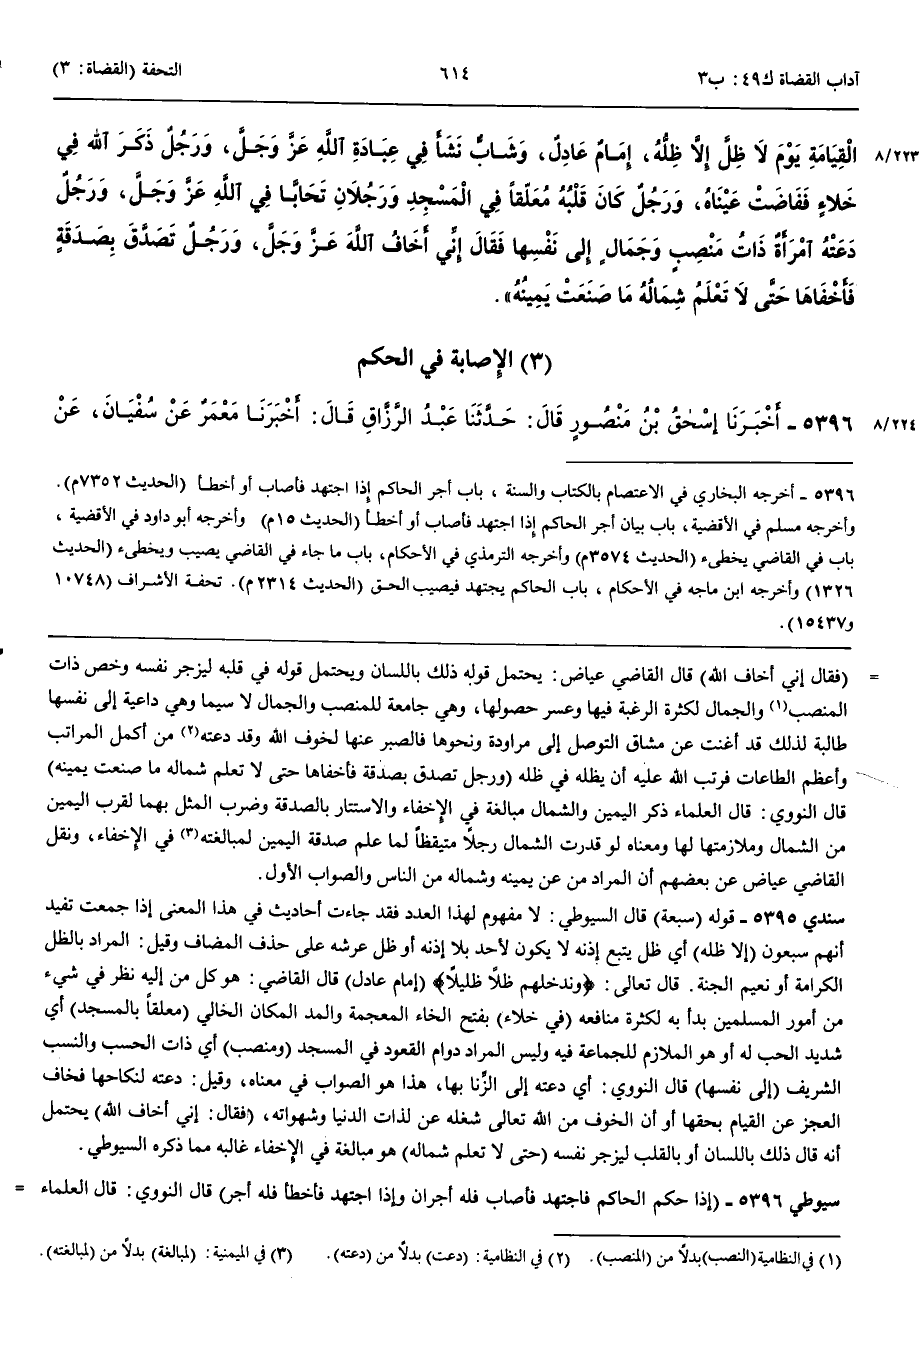 آداب القضاة ك٤٩: ب٣ ٦١٤ التحفة (القضاة: ٣)
٨/٢٢٣ الْقِيَامَةِ يَوْمَ لَا ظِلَّ إِلَّا ظِلُّهُ، إِمَامٌ عَادِلٌ، وَشَابٌّ نَشَأَ فِي عِبَادَةِ اللَّهِ عَزَّ وَجَلَّ، وَرَجُلٌ ذَكَرَ اللهَ فِي
خَلَاءٍ فَفَاضَتْ عَيْنَاهُ، وَرَجُلٌ كَانَ قَلْبُهُ مُعَلَّقاً فِي الْمَسْجِدِ وَرَجُلَانِ تَحَابَّا فِي اللَّهِ عَزَّ وَجَلَّ، وَرَجُلٌ
دَعَتْهُ امْرَأَةٌ ذَاتُ مَنْصِبٍ وَجَمَالٍ إِلَى نَفْسِهَا فَقَالَ إِنِّي أَخَافُ اللَّهَ عَزَّ وَجَلَّ، وَرَجُلٌ تَصَدَّقَ بِصَدَقَةٍ
فَأَخْفَاهَا حَتَّى لَا تَعْلَمُ شِمَالُهُ مَا صَنَعَتْ يَمِينُهُ».
(٣) الإِصابة في الحكم
٨/٢٢٤ ٥٣٩٦ ـ أَخْبَرَنَا إِسْحٰقُ بْنُ مَنْصُورٍ قَالَ: حَدَّثَنَا عَبْدُ الرَّزَّاقِ قَالَ: أَخْبَرَنَا مَعْمَرٌ عَنْ سُفْيَانَ، عَنْ
٥٣٩٦ ـ أخرجه البخاري في الاعتصام بالكتاب والسنة ، باب أجر الحاكم إذا اجتهد فأصاب أو أخطأ (الحديث ٧٣٥٢م).
وأخرجه مسلم في الأقضية، باب بيان أجر الحاكم إذا اجتهد فأصاب أو أخطأ (الحديث ١٥م) وأخرجه أبو داود في الأقضية ،
باب في القاضي يخطىء (الحديث ٣٥٧٤م) وأخرجه الترمذي في الأحكام، باب ما جاء في القاضي يصيب ويخطىء (الحديث
١٣٢٦) وأخرجه ابن ماجه في الأحكام ، باب الحاكم يجتهد فيصيب الحق (الحديث ٢٣١٤م). تحفة الأشراف (١٠٧٤٨
و١٥٤٣٧).
= (فقال إني أخاف الله) قال القاضي عياض: يحتمل قوله ذلك باللسان ويحتمل قوله في قلبه ليزجر نفسه وخص ذات
المنصب(١) والجمال لكثرة الرغبة فيها وعسر حصولها، وهي جامعة للمنصب والجمال لا سيما وهي داعية إلى نفسها
طالبة لذلك قد أغنت عن مشاق التوصل إلى مراودة ونحوها فالصبر عنها لخوف الله وقد دعته(٢) من أكمل المراتب
وأعظم الطاعات فرتب الله عليه أن يظله في ظله (ورجل تصدق بصدقة فأخفاها حتى لا تعلم شماله ما صنعت يمينه)
قال النووي: قال العلماء ذكر اليمين والشمال مبالغة في الإِخفاء والاستتار بالصدقة وضرب المثل بهما لقرب اليمين
من الشمال وملازمتها لها ومعناه لو قدرت الشمال رجلًا متيقظاً لما علم صدقة اليمين لمبالغته(٣) في الإِخفاء، ونقل
القاضي عياض عن بعضهم أن المراد من عن يمينه وشماله من الناس والصواب الأول.
سندي ٥٣٩٥ ـ قوله (سبعة) قال السيوطي: لا مفهوم لهذا العدد فقد جاءت أحاديث في هذا المعنى إذا جمعت تفيد
أنهم سبعون (إلا ظله) أي ظل يتبع إذنه لا يكون لأحد بلا إذنه أو ظل عرشه على حذف المضاف وقيل: المراد بالظل
الكرامة أو نعيم الجنة. قال تعالى: ﴿وندخلهم ظلًا ظليلًا﴾ (إمام عادل) قال القاضي: هو كل من إليه نظر في شيء
من أمور المسلمين بدأ به لكثرة منافعه (في خلاء) بفتح الخاء المعجمة والمد المكان الخالي (معلقاً بالمسجد) أي
شديد الحب له أو هو الملازم للجماعة فيه وليس المراد دوام القعود في المسجد (ومنصب) أي ذات الحسب والنسب
الشريف (إلى نفسها) قال النووي: أي دعته إلى الزِّنا بها، هذا هو الصواب في معناه، وقيل: دعته لنكاحها فخاف
العجز عن القيام بحقها أو أن الخوف من الله تعالى شغله عن لذات الدنيا وشهواته، (فقال: إني أخاف الله) يحتمل
أنه قال ذلك باللسان أو بالقلب ليزجر نفسه (حتى لا تعلم شماله) هو مبالغة في الإِخفاء غالبه مما ذكره السيوطي.
سيوطي ٥٣٩٦ ـ (إذا حكم الحاكم فاجتهد فأصاب فله أجران وإذا اجتهد فأخطأ فله أجر) قال النووي: قال العلماء =
(١) في النظامية (النصب) بدلاً من (المنصب). (٢) في النظامية: (دعت) بدلاً من (دعته). (٣) في الميمنية: (لمبالغة) بدلاً من (لمبالغته).